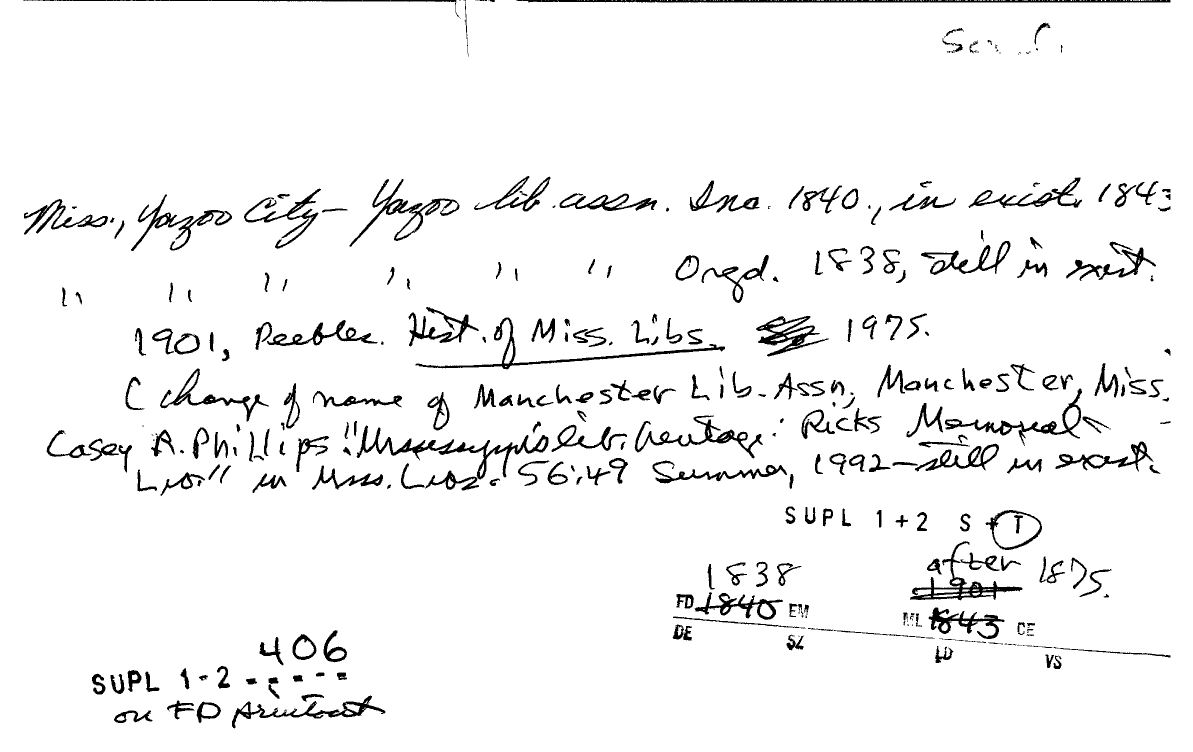 Miss., Yazoo City – Yazoo lib. assn. Inc. 1840., in exist. 1843
" " " " " " Orgd. 1838, still in exist.
1901, Peebles. Hist. of Miss. Libs. 1975.
( change of name of Manchester Lib. Assn, Manchester, Miss.
Casey A. Phillips "Mississippi's lib. heritage: Ricks Memorial
Libr." in Miss. Libs. 56:49 Summer, 1992 – still in exist.
SUPL 1+2 S + T
1838 after 1875.
1901
FD 1840 EM ML 1843 CE
DE SZ LD VS
406
SUPL 1-2 -----
on FD printout